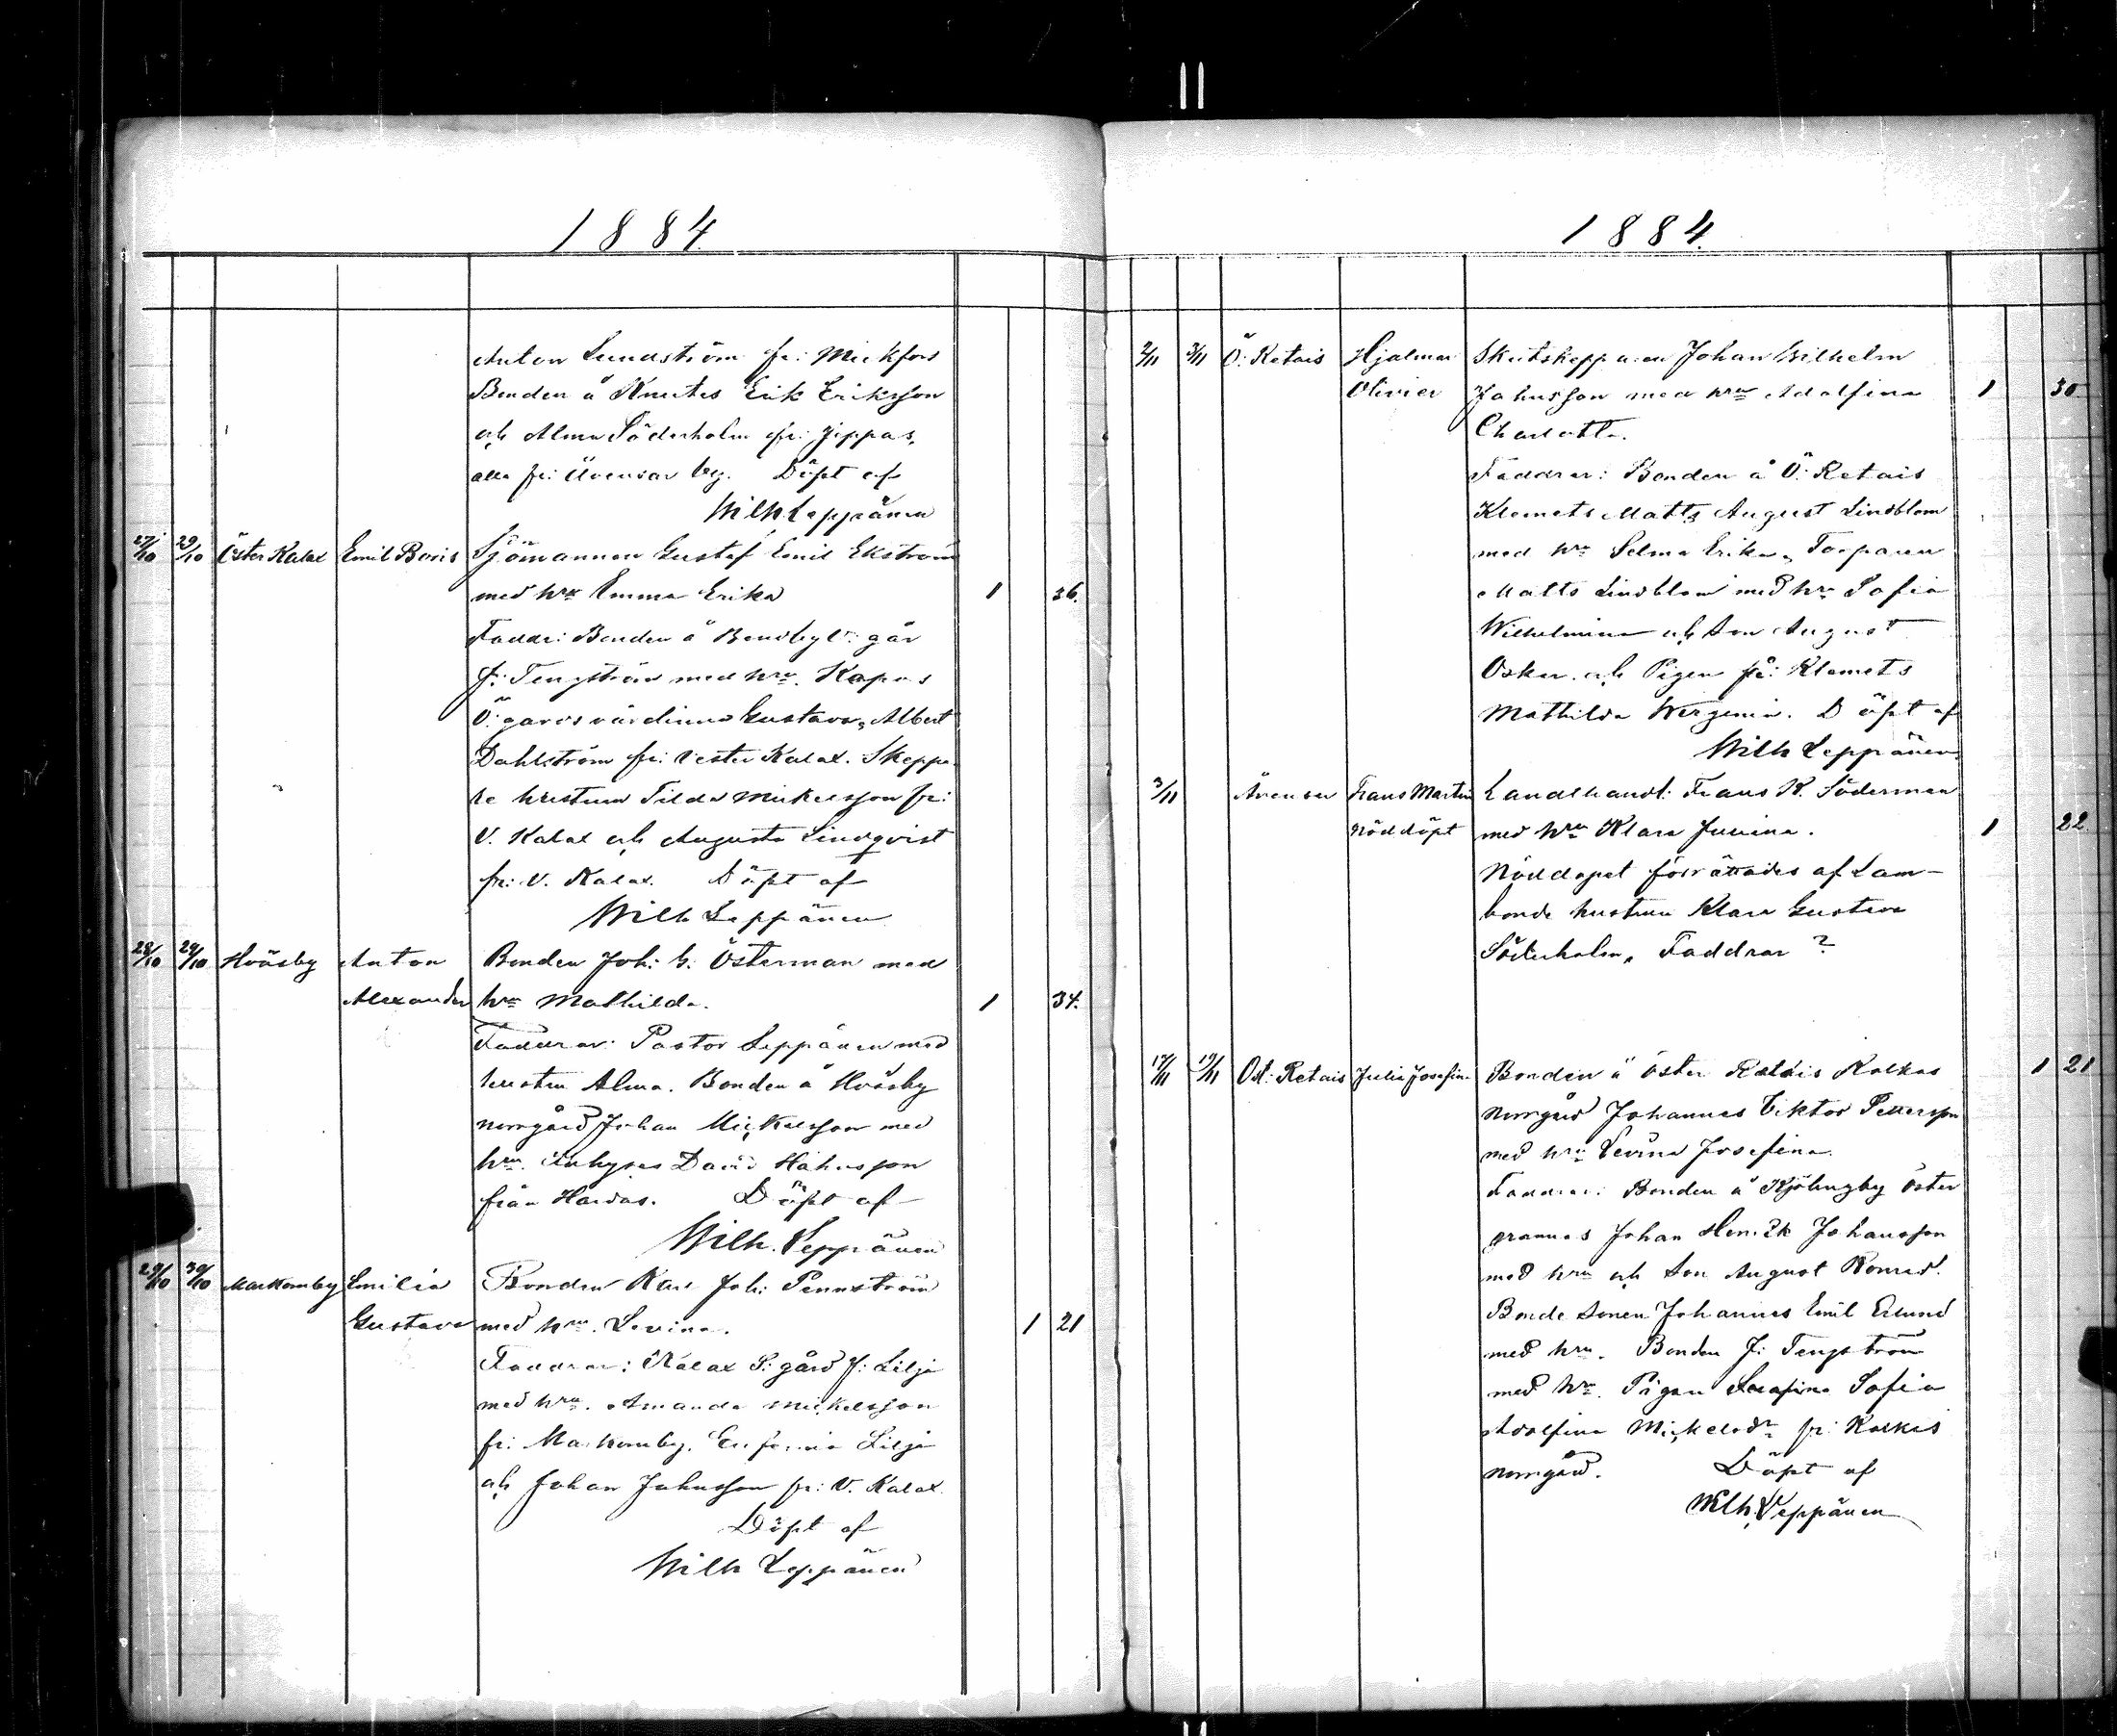 1884
Anton Lundström fr: Mickfors
Bonden å Knutes Erik Eriksson
och Alma Söderholm fr: Jeppas,
alla fr: Åvensar by. Döpt af
Wilh Leppänen
27/10 29/10 Öster Kalax Emil Boris Sjömannen Gustaf Emil Ekström
med hru Emma Erika 1 36.
Faddr: Bonden å Bensby går
J: Tengström med hru. Kapas
Ö: gårds värdinna Gustava, Albert
Dahlström fr: Vester Kalax. Skeppa-
re hustrun Tilda Mickelsson fr:
V. Kalax och Augusta Lindqvist
fr: V. Kalax. Döpt af
Wilh Leppänen
28/10 29/10 Hväsby Anton Bonden Joh: G. Österman med
Alexander hru Mathilda. 1 34.
Faddrar: Pastor Leppänen med
hustru Alma. Bonden å Hväsby
norrgård Johan Mickelsson med
hru. Inhyses David Håkansson
från Hardas. Döpt af
Wilh. Leppänen
29/10 30/10 Markomby Emilia Bonden Karl Joh: Pennström
Gustava med hru. Levina. 1 21
Faddrar: Kalax S: gård J: Lilje
med hru. Amanda Mickelsson
fr: Markomby. Eufemia Lilje
och Johan Johnsson fr: V. Kalax.
Döpt af
Wilh Leppänen
1884.
2/11 3/11 Ö: Retais Hjalmar Skutskepparen Johan Wilhelm
Olivier Johnsson med hru Adolfina 1 30.
Charlotta.
Faddrar: Bonden å Ö: Retais
Klemets Matts August Lindblom
med hru Selma Erika, Torparen
Matts Lindblom med hru Sofia
Wilhelmina och Son August
Oskar och Pigan fr: Klemets
Mathilda Wergenia. Döpt af
Wilh Leppänen
3/11 Åvensor Frans Martin Landthandl: Frans K. Söderman
Nöddöpt med hru Klara Juvina. 1 22.
Nöddopet förrättades af Lam-
bonde hustrun Klara Gustava
Söderholm, Faddrar ?
17/11 19/11 Öst: Retais Julia Josefina Bonden å Öster Retais Kalkas 1 21
norrgård Johannes Viktor Pettersson
med hru Levina Josefina.
Faddrar: Bonden å Kjölingby Öster
grannas Johan Henrik Johansson
med hru och Son August Konrad.
Bonde Sonen Johannes Emil Erlund
med hru. Bonden J: Tengström
med hru. Pigan Serafina Sofia
Adolfina Mickelsdr fr: Kalkas
norrgård. Döpt af
Wilh. Leppänen